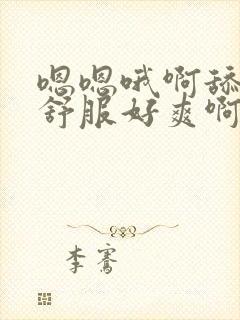 嗯嗯哦啊舔
舒服好爽啊
李骞